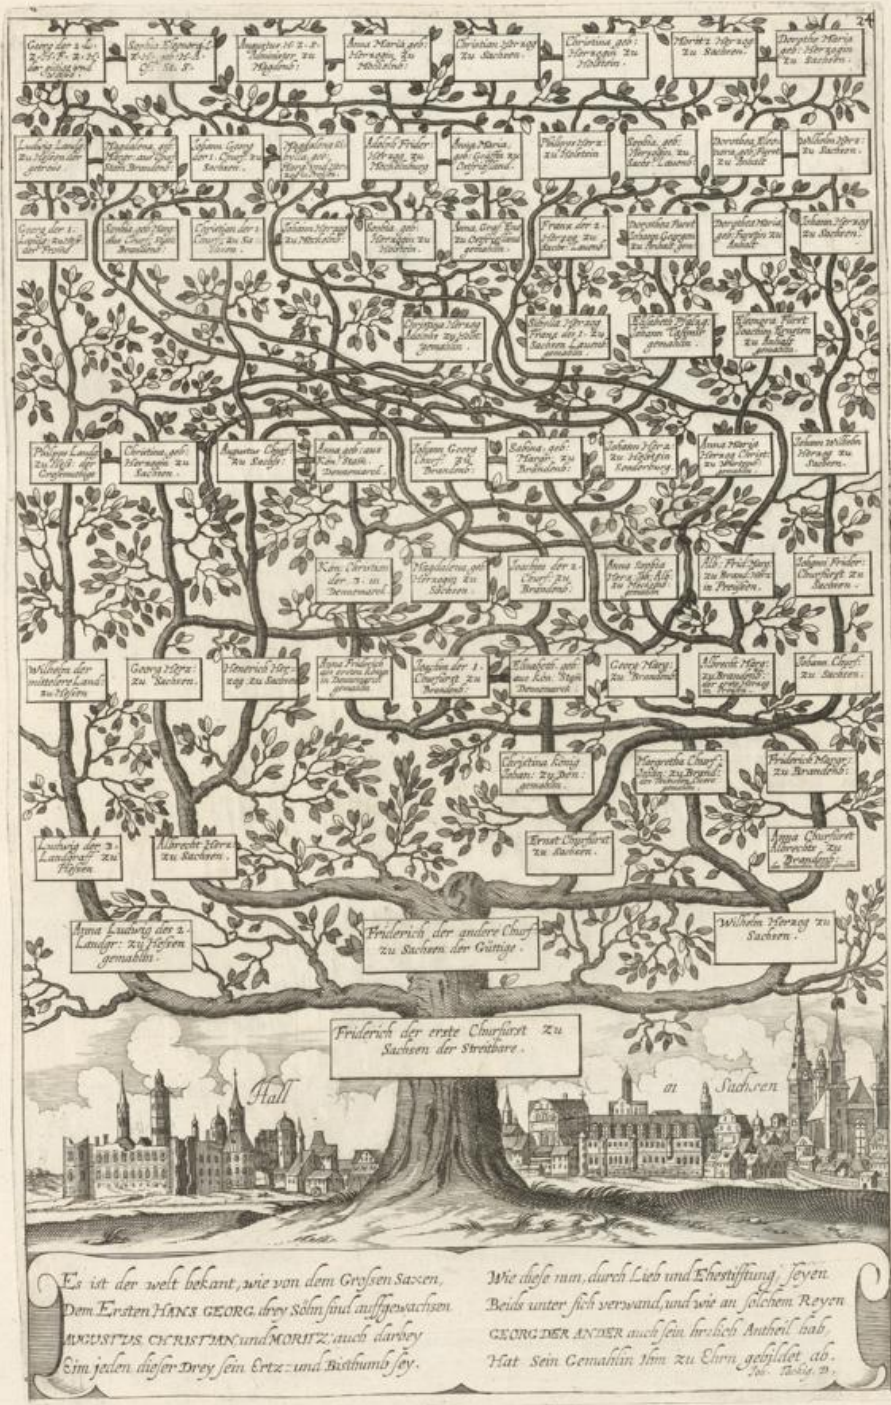 24
Georg der 2. L.
Z. H. F. Z. H.
Sophia Eleonora L.
Augustus H. Z. S.
Magdenb:
Anna Maria geb:
Herzogin zu
Mechelnb:
Christian Herzog
zu Sachsen.
Christina geb:
Herzogin zu
Holstein.
Moritz Herzog
zu Sachsen.
Dorothe Maria
geb: Herzogin
zu Sachsen.
Ludwig Landg
zu Hessen der
getreue
Magdalena, geb:
Stam Brandenb:
Johann Georg
der 1. Churf. zu
Sachsen.
Magdalena Si-
bylla geb:
Adolph Frider:
Hertzog zu
Mechelnburg
Anna Maria,
geb: Gräffin zu
Ostfrießland.
Philipus Herz:
zu Holstein
Sophia, geb:
Herzogin zu
Sachs: Lauenb:
Dorothea Eleo-
nora, geb: Fürst
zu Anhalt
Wilhelm Herz:
zu Sachsen.
Georg der 1.
Landg: zu Hess
der From
Sophia geb: Marg:
aus Churf. Stam
Brandenb:
Christian der 1.
Churf: zu Sa
chsen
Johann Herzog
zu Mechelnb:
Sophia geb:
Herzogin zu
Holstein.
Anna Graf Enno
zu Ostfrießland
gemahlin.
Franz der 2.
Herzog zu
Sachs: Lauenb
Dorothea Fürst
Johann Georgen
zu Anhalt gem
Dorothea Maria
geb: Fürstin zu
Anhalt
Johann Herzog
zu Sachsen.
Christina Herzog
Adolphs zu Holst:
gemahlin.
Sibylla Herzog
Franz der 1. zu
Sachsen Lauenb
gemahlin.
Elisabeth Pfaltzg:
Johann Casimir
gemahlin.
Eleonora Fürst
Joachim Ernsten
zu Anhalt
gemahlin.
Philips Landg
zu Hess: der
Großmütige
Christina, geb:
Herzogin zu
Sachsen.
Augustus Churf:
zu Sachs:
Anna geb: aus
Kön. Stam
Dennemarck.
Johann Georg
Churf: zu
Brandenb:
Sabina geb:
Margr: zu
Brandenb:
Johann Herz:
zu Holstein
Sonderburg.
Anna Maria
Herzog Christ:
zu Würtenb:
gemahlin
Johann Wilhelm
Herzog zu
Sachsen.
Kön: Christian
der 3. in
Dennemarck.
Magdalena, geb
Herzogin zu
Sachsen.
Joachim der 2.
Churf: zu
Brandenb:
Anna Sophia
gemahlin
Alb: Frid: Marg:
zu Brand: Herz
in Preussen.
Johann Frider:
Churfürst zu
Sachsen.
Wilhelm der
mittelere Land:
zu Hessen
Georg Herz:
zu Sachsen.
Henerich Her-
zog zu Sachsen
Anna Friderich
des ersten Königs
in Dennemarck
gemahlin
Joachim der 1.
Churfürst zu
Brandenb:
Elisabeth, geb
aus Kön: Stam
Dennemarck
Georg Marg:
zu Brandenb:
Albrecht Marg:
zu Brandenb:
der erste Herzog
in Preußn.
Johann Churf:
zu Sachsen.
Christina König
Johan: zu Den:
gemahlin.
Margretha Churf:
Johan: zu Brand:
gemahlin.
Friderich Margr:
zu Brandenb:
Ludwig der 3.
Landgraff zu
Hessen
Albrecht Herz:
zu Sachsen.
Ernst Churfürst
zu Sachsen.
Anna Churfürst
Albrechts zu
Brandenb:
Anna Ludwig des 2.
Landgr: zu Hessen
gemahlin.
Friderich der andere Churf
zu Sachsen der Güttige.
Wilhelm Herzog zu
Sachsen.
Friderich der erste Churfürst zu
Sachsen der Streitbare.
Hall in Sachsen
Es ist der welt bekant, wie von dem Grossen Saxen,
Dem Ersten HANS GEORG, drey Söhn sind auffgewachsen
AUGUSTUS, CHRISTIAN und MORITZ, auch darbey
Eim jeden dieser Drey sein Ertz- und Bisthumb sey.
Wie diese nun, durch Lieb und Ehestifftung, seyen
Beids unter sich verwand, und wie an solchem Reyen
GEORG DER ANDER auch sein herzlich Antheil hab,
Hat Sein Gemahlin Ihm zu Ehrn gebildet ab.